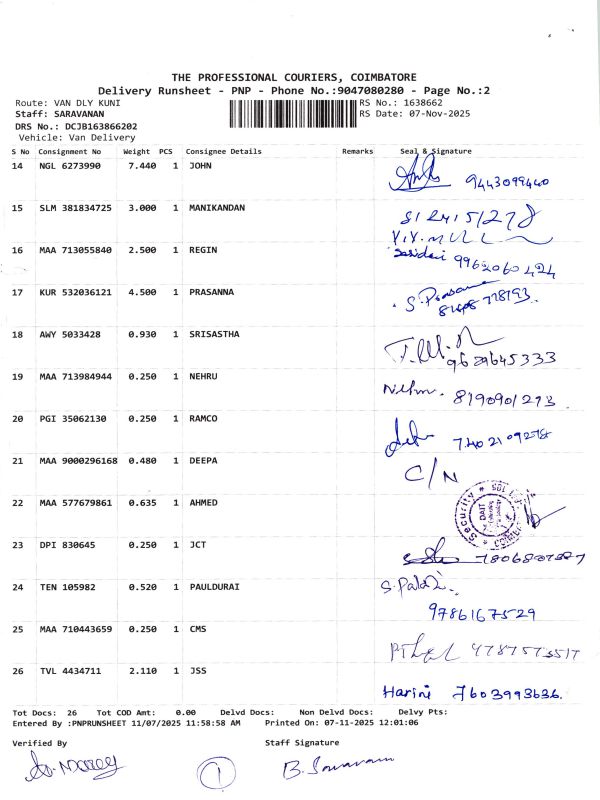 THE PROFESSIONAL COURIERS, COIMBATORE
Delivery Runsheet - PNP - Phone No.:9047080280 - Page No.:2
Route: VAN DLY KUNI RS No.: 1638662
Staff: SARAVANAN RS Date: 07-Nov-2025
DRS No.: DCJB163866202
Vehicle: Van Delivery
S No Consignment No Weight PCS Consignee Details Remarks Seal & Signature
14 NGL 6273990 7.440 1 JOHN
9443099440
15 SLM 381834725 3.000 1 MANIKANDAN
16 MAA 713055840 2.500 1 REGIN
9962060424
17 KUR 532036121 4.500 1 PRASANNA
S. Prasanna
18 AWY 5033428 0.930 1 SRISASTHA
9629645333
19 MAA 713984944 0.250 1 NEHRU
Nehru. 8190901293
20 PGI 35062130 0.250 1 RAMCO
21 MAA 9000296168 0.480 1 DEEPA
C/N
22 MAA 577679861 0.635 1 AHMED
Security
23 DPI 830645 0.250 1 JCT
24 TEN 105982 0.520 1 PAULDURAI
9786167529
25 MAA 710443659 0.250 1 CMS
26 TVL 4434711 2.110 1 JSS
Harini 7603993636.
Tot Docs: 26 Tot COD Amt: 0.00 Delvd Docs: Non Delvd Docs: Delvy Pts:
Entered By :PNPRUNSHEET 11/07/2025 11:58:58 AM Printed On: 07-11-2025 12:01:06
Verified By Staff Signature
1 B. Saravanan